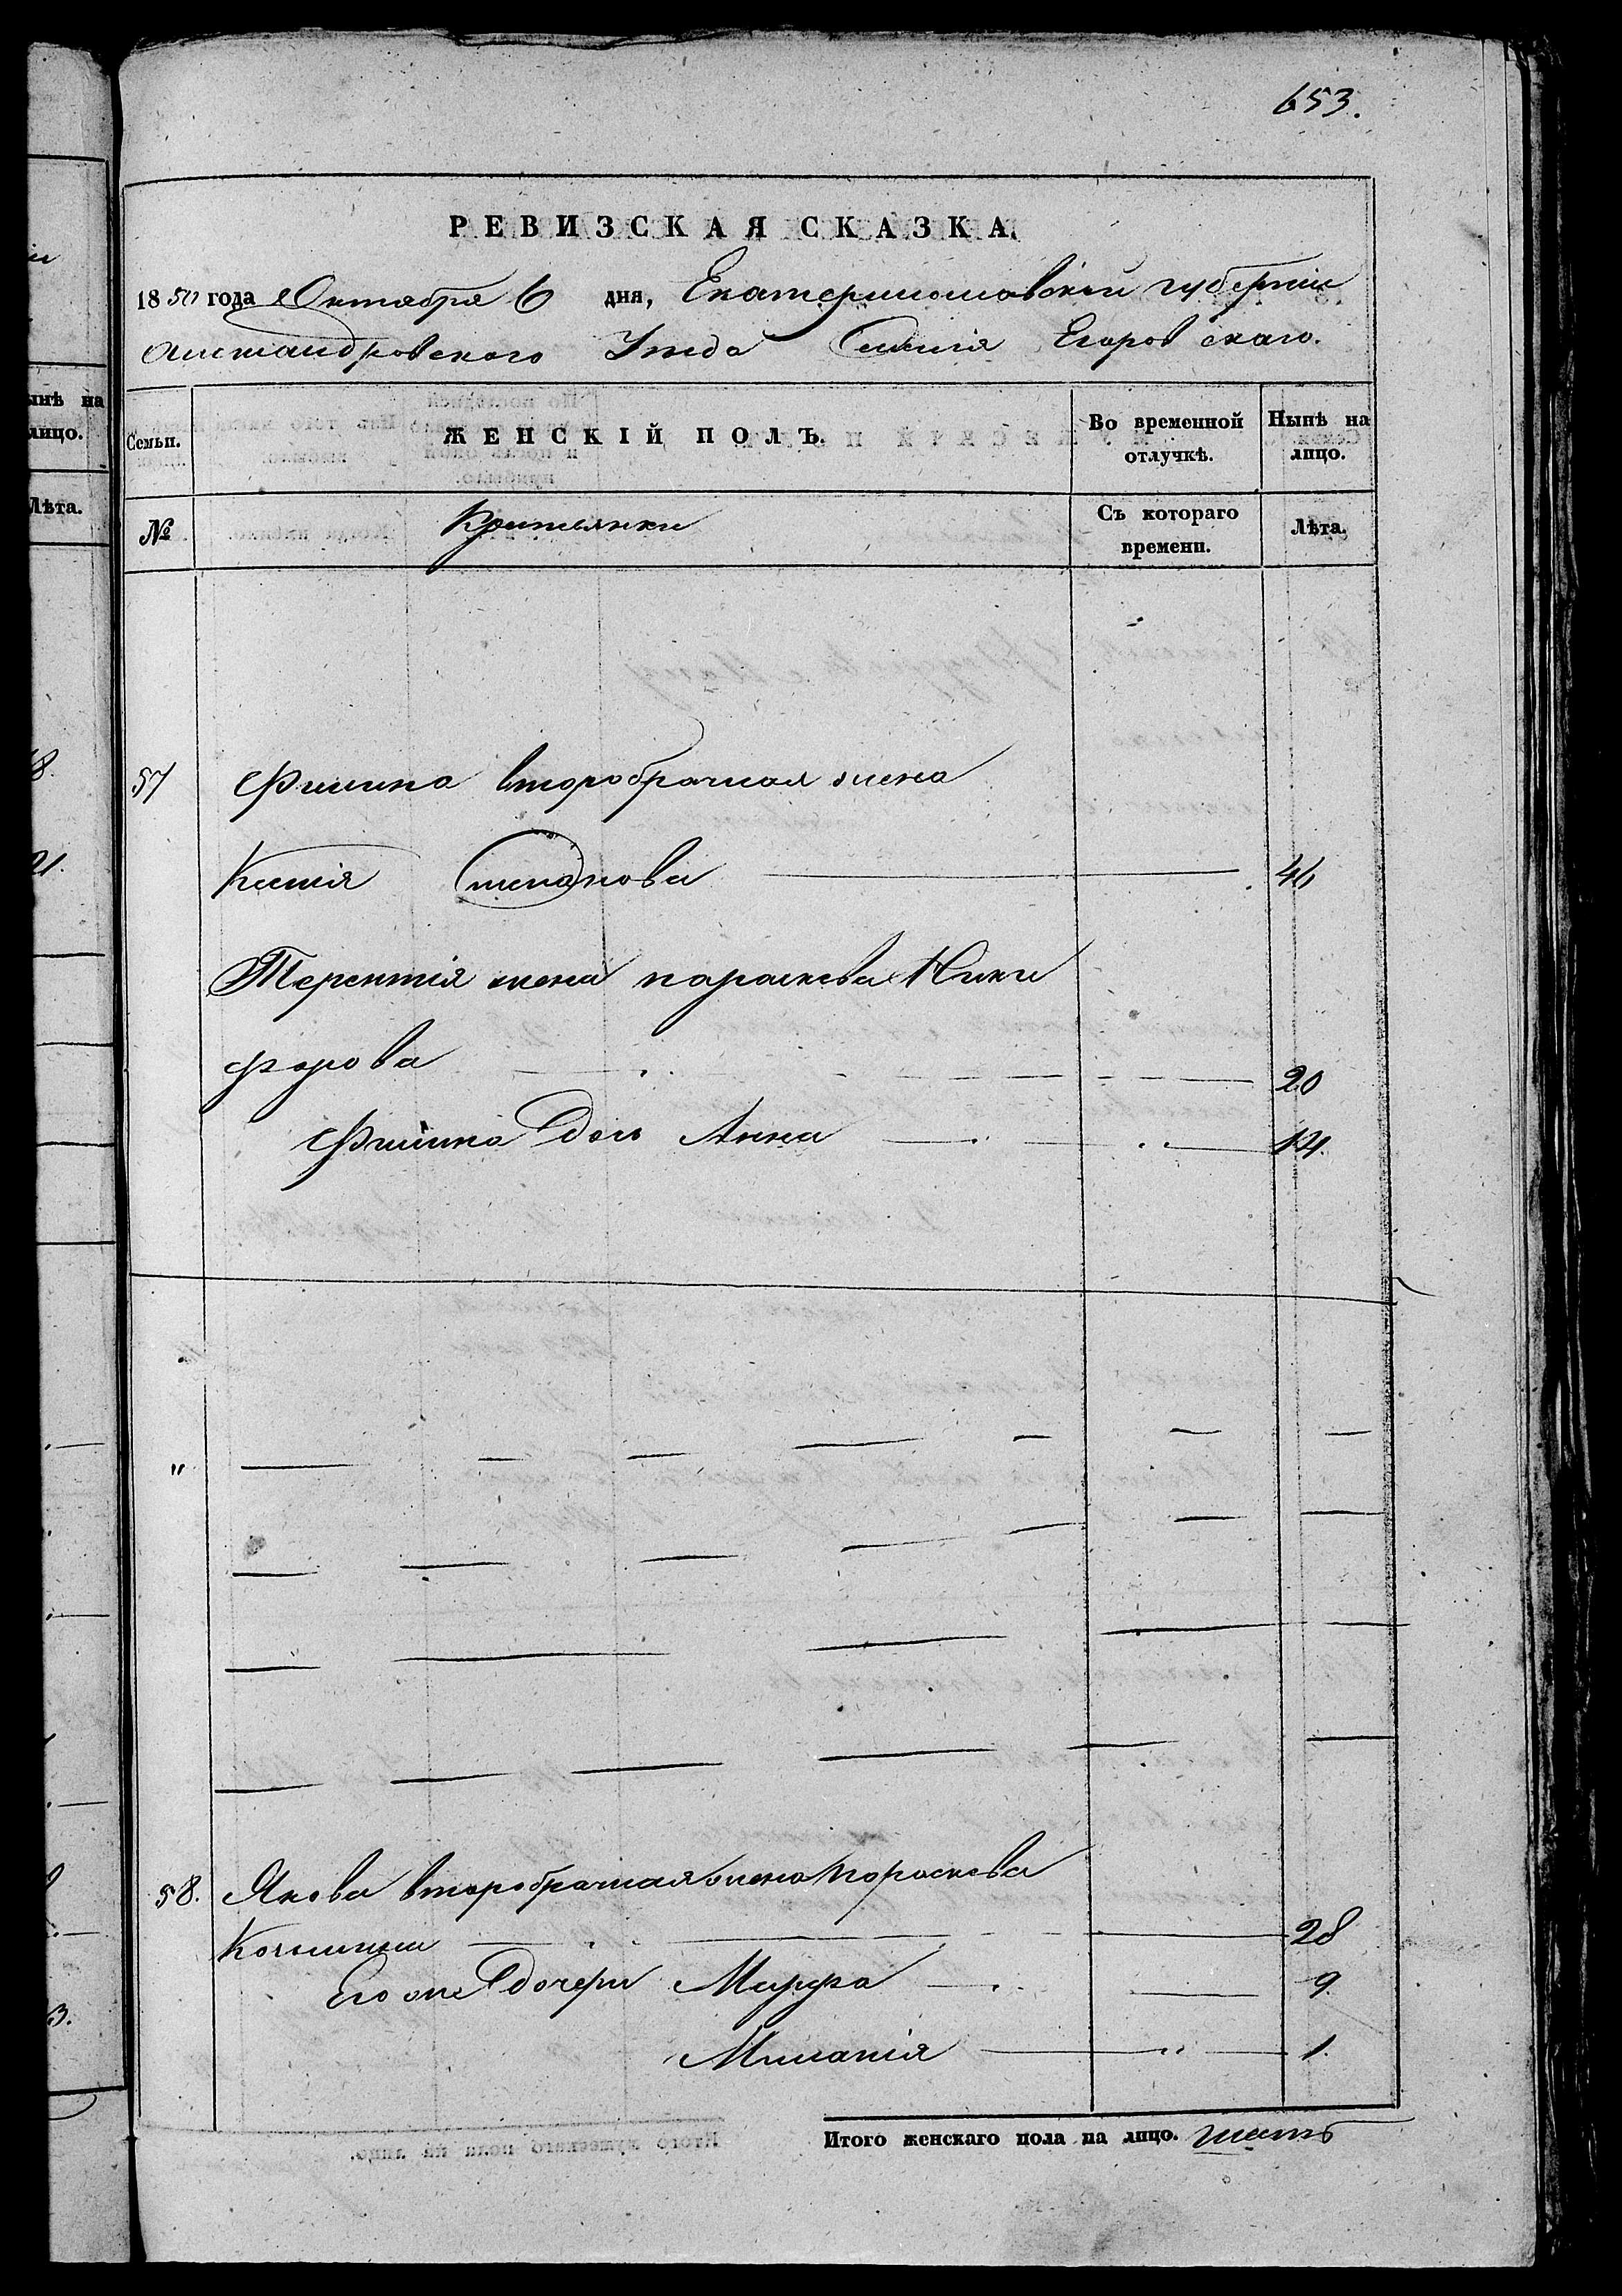 653.
РЕВИЗСКАЯ СКАЗКА.
1850 года Октября 6 дня, Екатеринославской губернии
Александровского Уезда Селения Егоровскаго.
Семьи. ЖЕНСКІЙ ПОЛЪ. Во временной отлучкѣ. Нынѣ на лицо.
№ Крестьянки Съ котораго времени. Лѣта.
57 Филипа второбрачная жена
Ксения Степанова 46
Терентія жена параскева Ники
форова 20
Филипа Дочь Анна 14.
"
58. Якова второбрачная жена Пораскева
28
Его же дочери Марфа 9
Миланія 1.
Итого женскаго пола на лицо. шесть
ынѣ на
лицо.
Лѣта.
8.
21.
3.